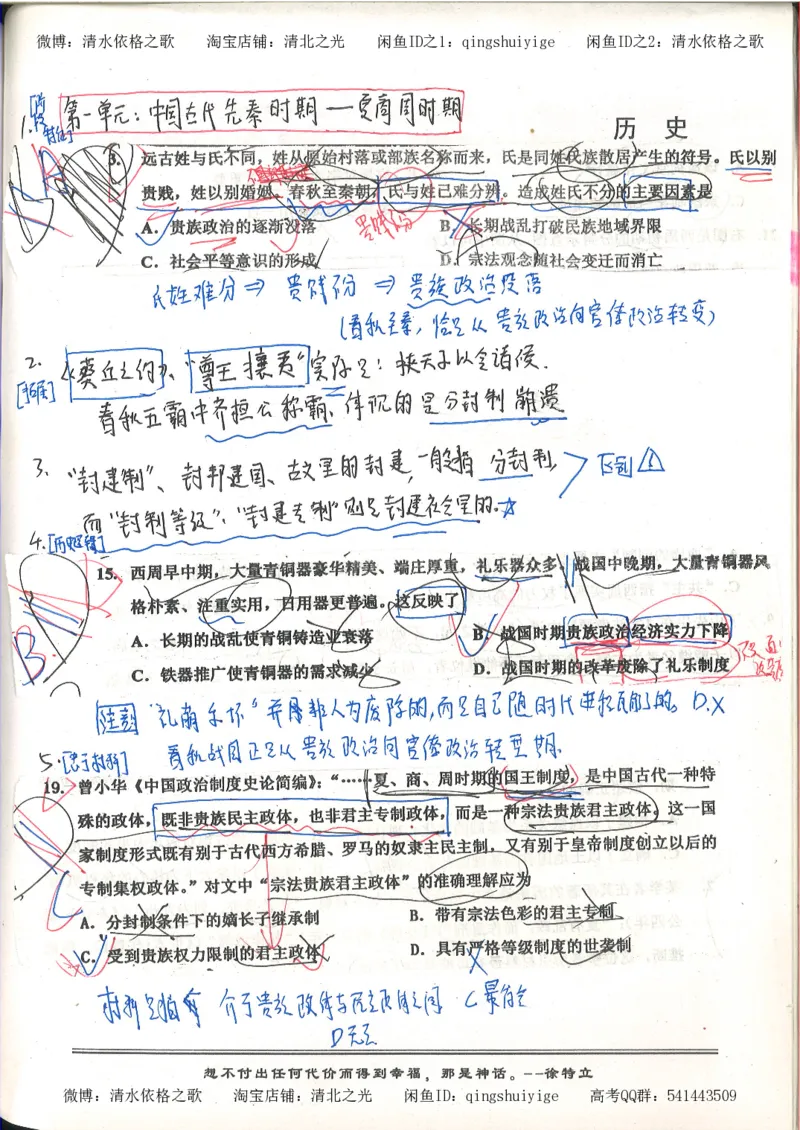 微博：清水依格之歌 淘宝店铺：清北之光 闲鱼ID之1：qingshuiyige 闲鱼ID之2：清水依格之歌
第一单元：中国古代先秦时期—夏商周时期
1.
历 史
3. 远古姓与氏不同，姓从原始村落或部族名称而来，氏是同姓民族散居产生的符号。氏以别
贵贱，姓以别婚姻。春秋至秦朝，氏与姓已难分辨。造成姓氏不分的主要因素是
A. 贵族政治的逐渐没落 B. 长期战乱打破民族地域界限
贵贱份
C. 社会平等意识的形成 D. 宗法观念随社会变迁而消亡
氏姓难分⇒ 贵贱份 ⇒ 贵族政治没落
(春秋至秦，恰是从贵族政治向官僚政治转变)
2. 《葵丘之约》、“尊王攘夷”实际是：挟天子以令诸侯.
[拓展]
春秋五霸中齐桓公称霸、体现的是分封制崩溃
3、“封建制”、封邦建国、故里的封建，一般指分封制， 区别
而“封制等级”、“封建专制”则是封建社会里的.
4.
15. 西周早中期，大量青铜器豪华精美、端庄厚重，礼乐器众多，战国中晚期，大量青铜器风
格朴素、注重实用，日用器更普遍。这反映了
A. 长期的战乱使青铜铸造业衰落 B. 战国时期贵族政治经济实力下降
C. 铁器推广使青铜器的需求减少 D. 战国时期的改革废除了礼乐制度
B
“礼崩乐坏”并非人为废除的，而是自己随时代进程瓦解了的。D.X
5. 春秋战国正是从贵族政治向官僚政治转型期.
19. 曾小华《中国政治制度史论简编》：“……夏、商、周时期的国王制度，是中国古代一种特
殊的政体，既非贵族民主政体，也非君主专制政体，而是一种宗法贵族君主政体，这一国
家制度形式既有别于古代西方希腊、罗马的奴隶主民主制，又有别于皇帝制度创立以后的
专制集权政体。”对文中“宗法贵族君主政体”的准确理解应为
C
A. 分封制条件下的嫡长子继承制 B. 带有宗法色彩的君主专制
C. 受到贵族权力限制的君主政体 D. 具有严格等级制度的世袭制
介于贵族政体与民主政体之间 C最符合
想不付出任何代价而得到幸福，那是神话。--徐特立
微博：清水依格之歌 淘宝店铺：清北之光 闲鱼ID：qingshuiyige 高考QQ群：541443509